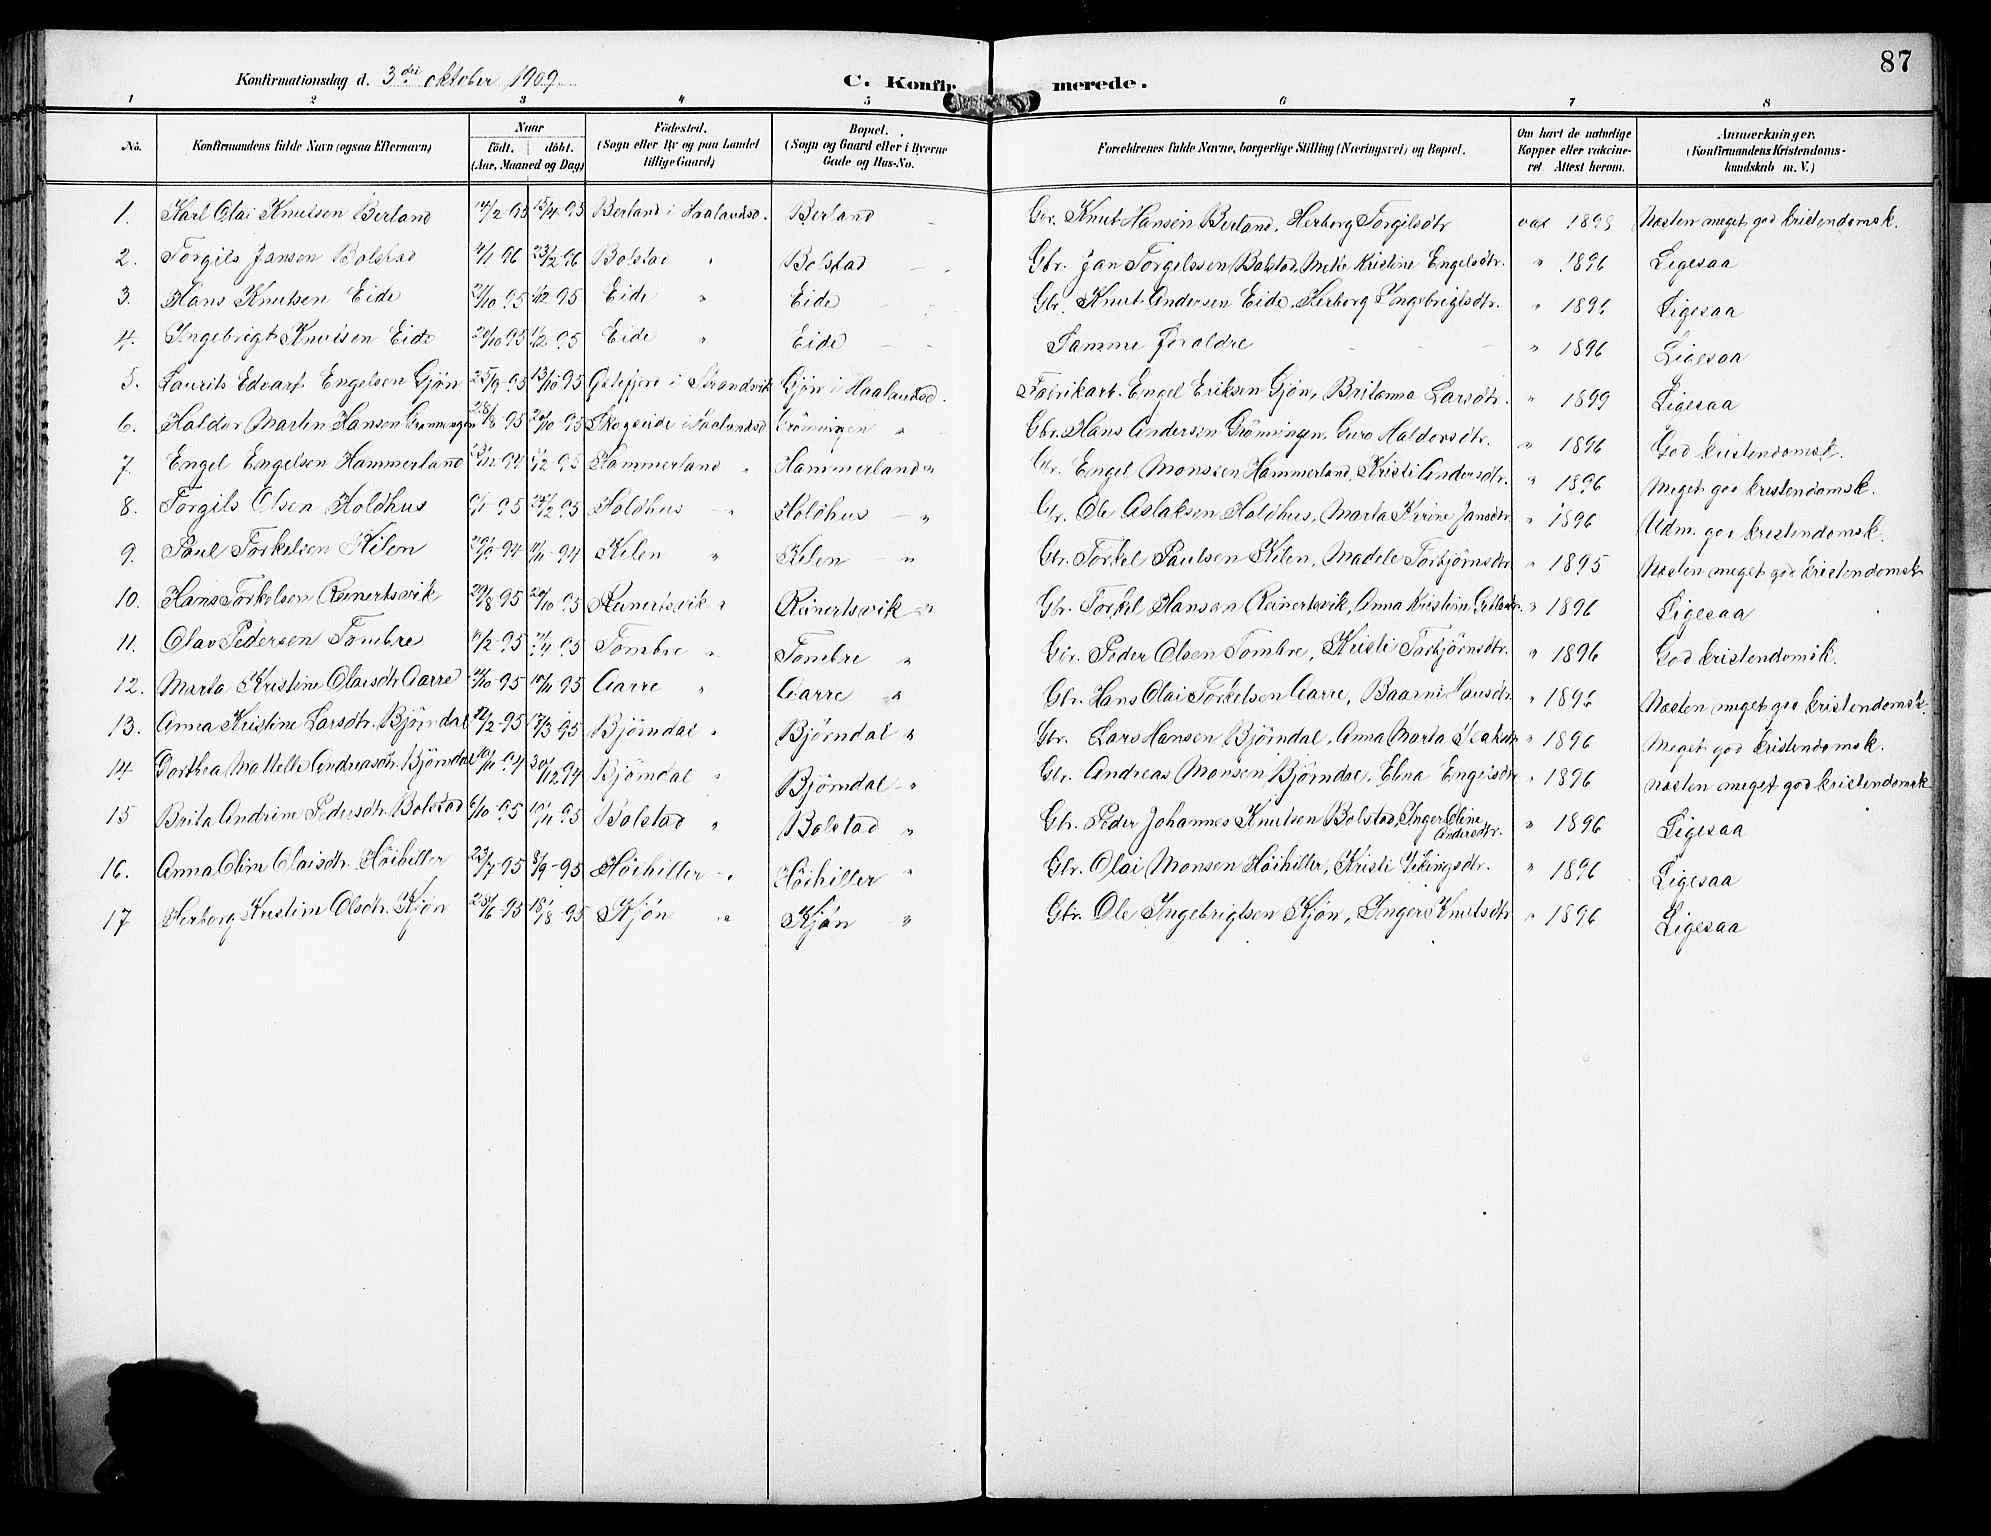 87
Konfirmationsdag d. 3die oktober 1909 C. Konfirmerede.
1 2 3 4 5 6 7 8
No. Konfirmandens fulde Navn (ogsaa Efternavn) Naar födt. döbt. (Aar, Maaned og Dag) Födested. (Sogn eller By og paa Landet tillige Gaard) Bopæl. (Sogn og Gaard eller i Byerne Gade og Hus-No. Forældrenes fulde Navne, borgerlige Stilling (Næringsvei) og Bopæl. Om havt de naturlige Kopper eller vakcineret Attest herom. Anmærkninger. (Konfirmandens Kristendomskundskab m. V.)
1. Karl Olai Knutsen Berland 14/2-95 15/4-95 Berland i Haalandsd. Berland Gbr. Knut Hansen Berland, Herborg Torgilsdtr vax Næsten meget god kristendomsk.
2. Torgils Jansen Bolstad 4/1 96 23/2-96 Bolstad " Bolstad Gbr. Jan Torgelssen Bolstad, Kristine Engelsdtr. " 1896 Ligesaa
3. Hans Knutsen Eide 1/12-95 Eide " Eide Gbr. Knut Andersen Eide, Herborg Ingebrigtsdtr. " 1896 Ligesaa
4. Ingebrigt Knutsen Eide 20/10-95 1/12-95 Eide " Eide Samme foraldre " 1896 Ligesaa
5. Laurits Edvart Engelsen Gjøn 25/9-95 13/10-95 i Strandvik Gjøn i Haalandsd. Fabrikarb. Engel Eriksen Gjøn, Britanna Larsdtr. " 1899 Ligesaa
6. Haldor Martin Hansen Grønningen 28/8-95 20/10-95 Skogseide i Haalandsd Grönningen " Gbr. Hans Andersen Grönningen, Guro Haldorsdtr. " 1896 God kristendomsk.
7. Engel Engelsen Hammerland Hammerland " Hammerland " Gbr. Engel Monssen Hammerland, Kristi Andersdtr. " 1896 Meget god kristendomsk.
8. Torgils Olsen Holdhus 24/2-95 Holdhus " Holdhus " Gbr. Ole Aslaksen Holdhus, Marta Karine Jansdtr " 1896 Udm. god kristendomsk.
9. Paul Torkelsen Kilen 29/9-94 Kilen " Kilen " Gbr. Torkel Paulsen Kilen, Madele Torbjørnsdtr " 1895 Næsten meget god kristendomsk
10. Hans Torkelsen Reinertsvik 29/8 95 20/10-95 Reinertsvik " Reinertsvik " Gbr. Torkel Hansen Reinertsvik, Anna Kristine " 1896 Ligesaa
11. Olav Pedersen Tombre 11/2-95 Tombre " Tombre " Gbr. Peder Olsen Tombre, Kristi Torbjørnsdtr. " 1896 God kristendomsk.
12. Marta Kristine Olaisdtr Aarre 10/11 95 Aarre " Aarre " Gbr. Hans Olai Torkelsen Aarre, Baarni Hansdtr. " 1896 Næsten meget god kristendomsk.
13. Anna Kristine Larsdtr. Björndal 22/2-95 17/3-95 Björndal " Björndal " Gbr. Lars Hansen Björndal, Anna Marta " 1896 Meget god kristendomsk.
14 Dorthea Andreasdtr. Björndal 10/11 94 30/12 94 Björndal " Björndal " Gbr. Andreas Monsen Björndal, Elna Engelsdtr " 1896 næsten meget god kristendomsk
15 Brita Andrine Pedersdtr. Bolstad 6/10-95 10/11 95 Bolstad " Bolstad " Gbr. Peder Johannes Knutsen Bolstad, Inger Oline Andersdtr. " 1896 Ligesaa
16. Anna Oline Olaisdtr. Höihiller 23/7-95 8/9-95 Höihiller " Höihiller " Gbr. Olai Monsen Höihiller, Kristi Vikingsdtr. " 1896 Ligesaa
17 Herborg Kristine Olsdtr. Kjön 28/6-95 18/8-95 Kjön " Kjön " Gbr. Ole Ingebrigtsen Kjön, Inger Knutsdtr " 1896 Ligesaa